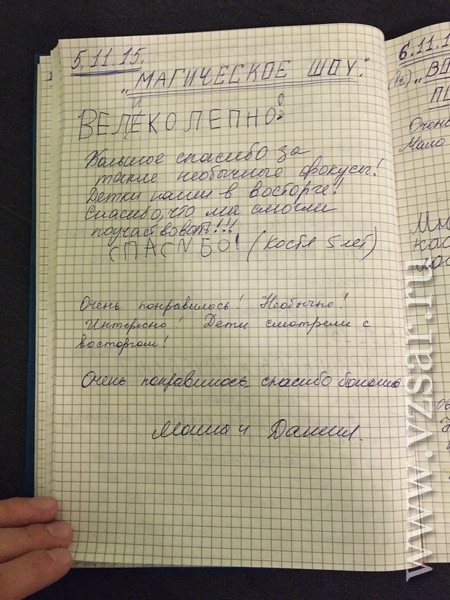 5.11.15.
„МАГИЧЕСКОЕ ШОУ."
И
ВЕЛЕКОЛЕПНО!
Большое спасибо за
такие необычные фокусы!
Детки наши в восторге!!
Спасибо, что мы смогли
поучаствовать!!!
СПАСИБО! (Костя 5 лет)
Очень понравилось! Необычно!
Интересно! Дети смотрели с
восторгом!
Очень понравилось спасибо большое
Маша и Данил.
6.11.1
(1ч.) „ВО
ПУ
Очень
Мало
www.vzsar.ru